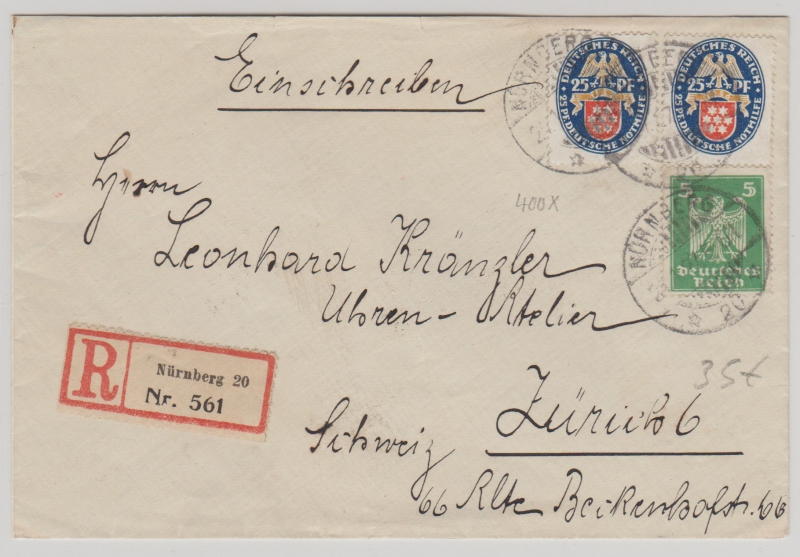 Einschreiben
DEUTSCHES REICH
25 PF
25 PF DEUTSCHE NOTHILFE
DEUTSCHES REICH
25 PF
25 PF DEUTSCHE NOTHILFE
NÜRNBERG
5 5
Deutsches
Reich
NÜRNBERG
20
400X
Herrn
Leonhard Kränzler
Uhren-Atelier
R
Nürnberg 20
Nr. 561
35€
Zürich 6
Schweiz
66 Alte Beckenhofstr. 66